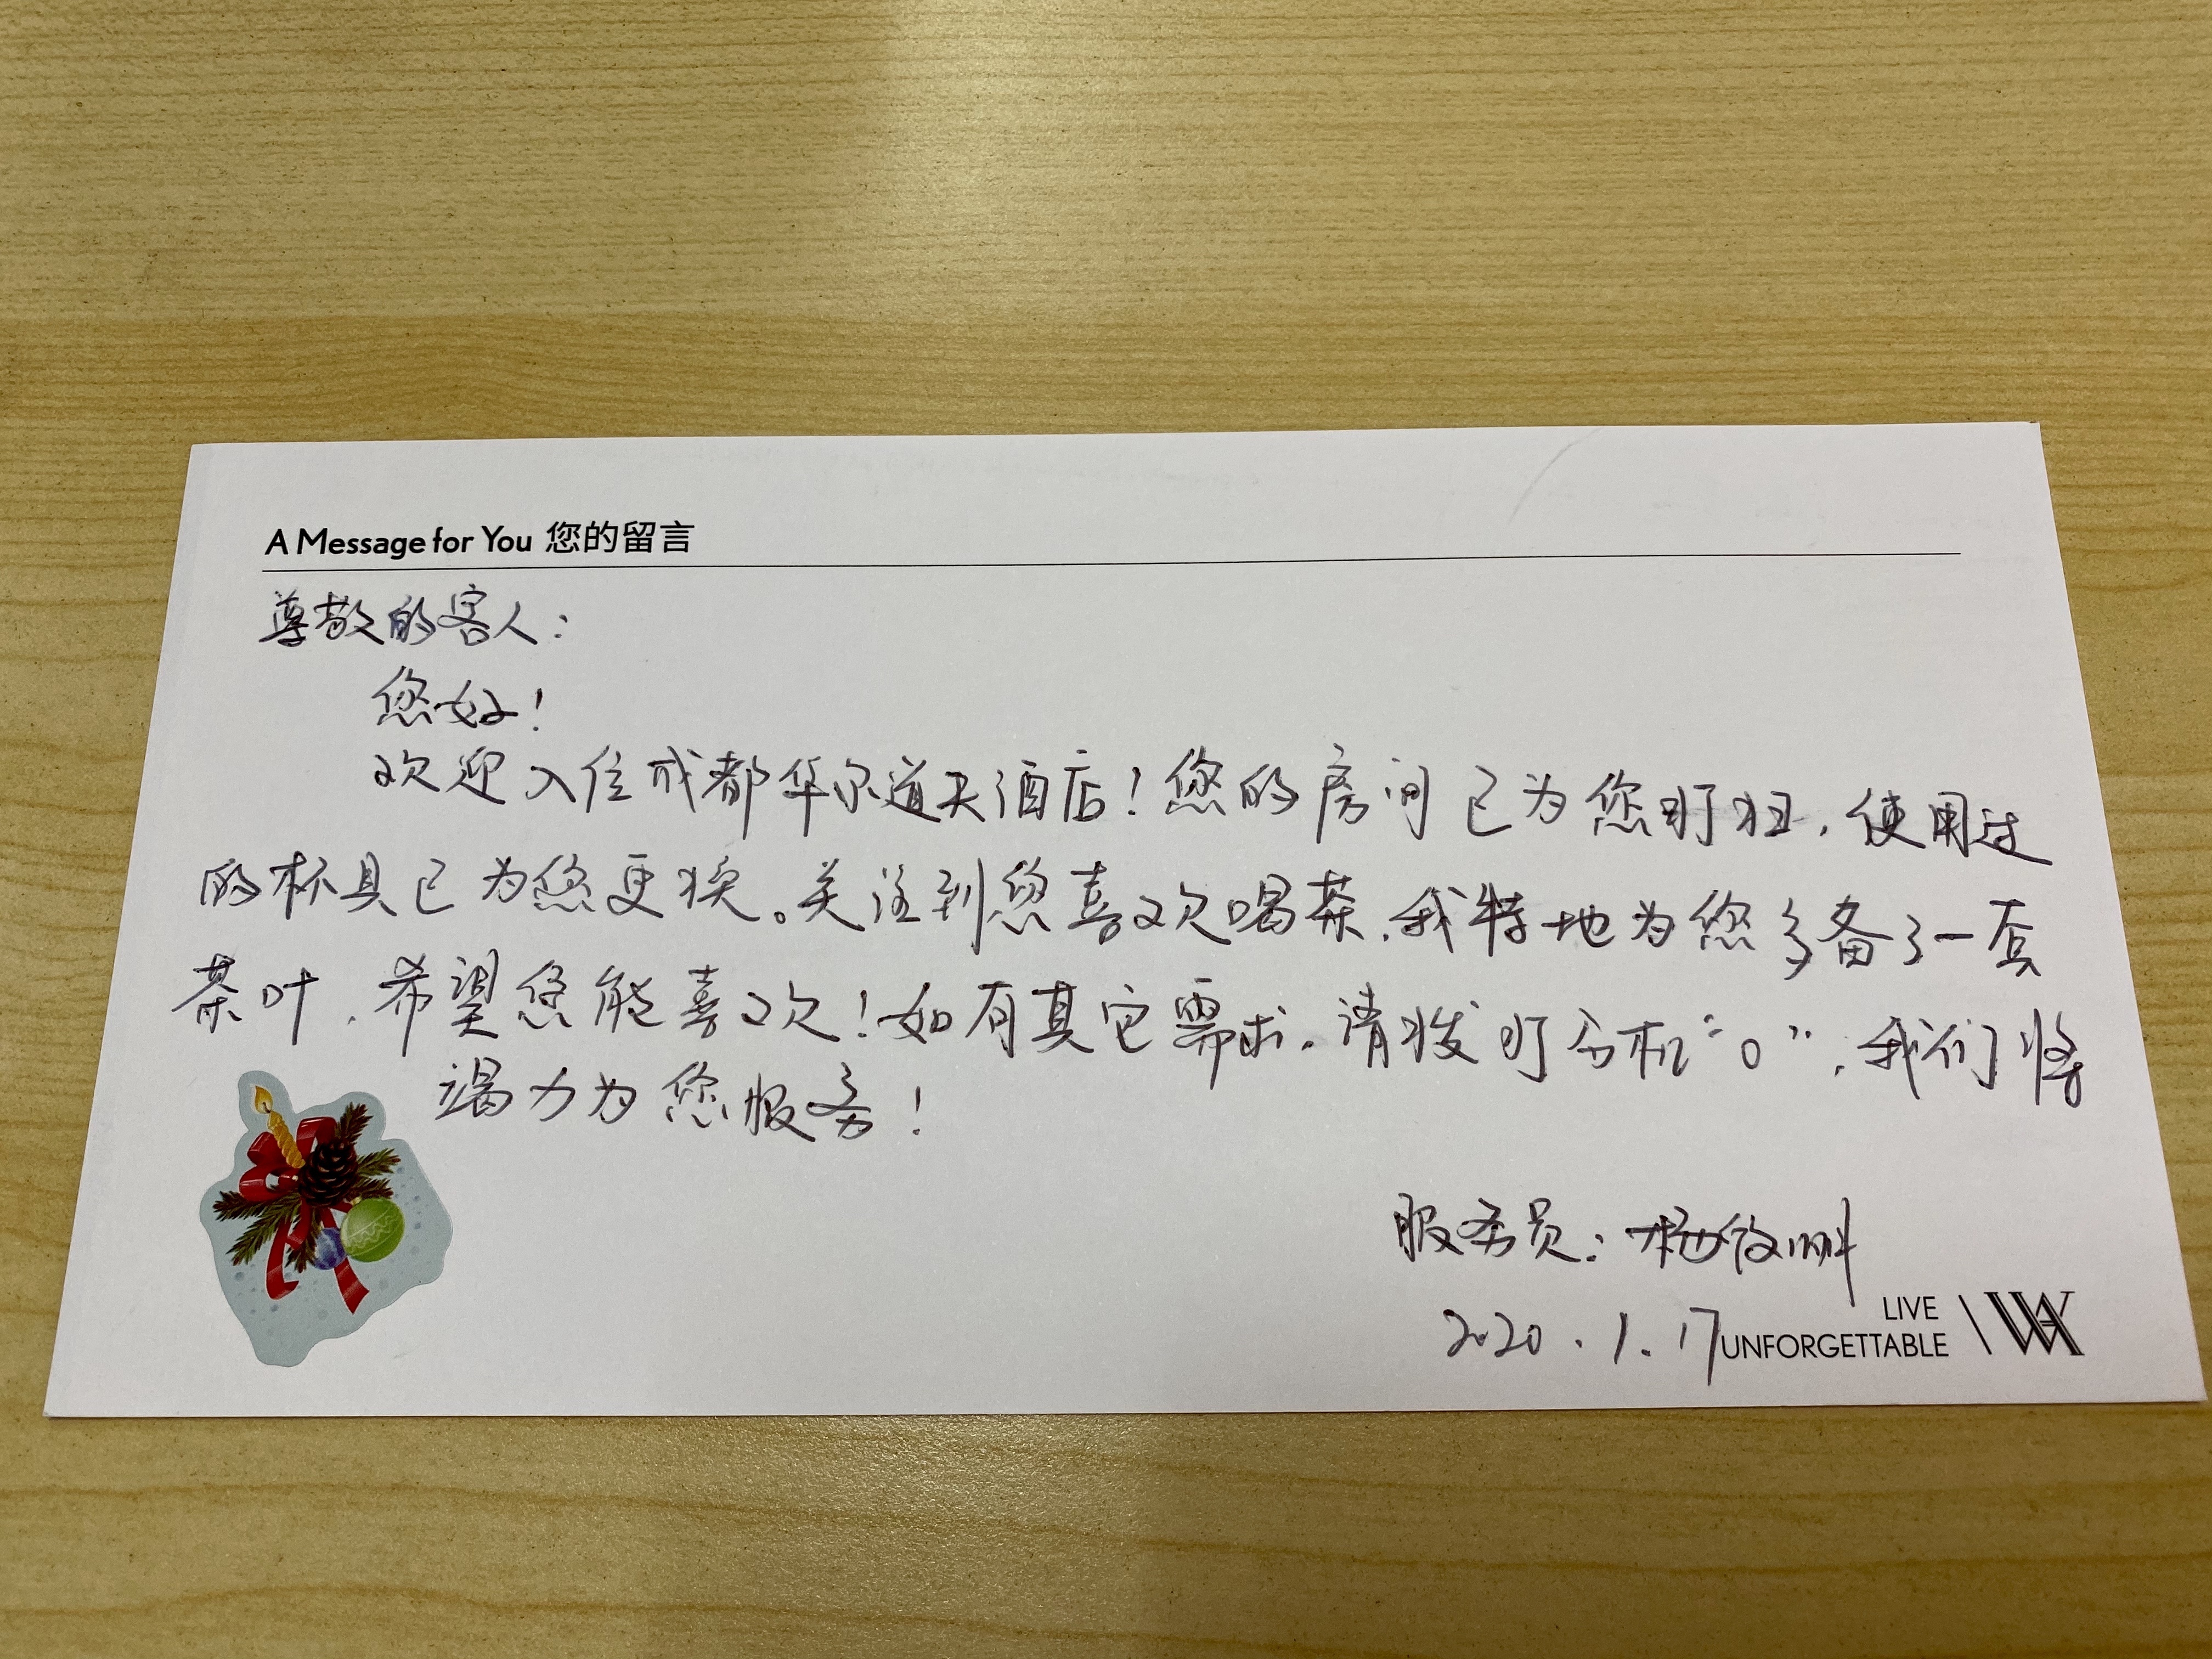 A Message for You 您的留言
尊敬的客人：
您好！
欢迎入住成都华尔道夫酒店！您的房间已为您打扫，使用过
的杯具已为您更换。关注到您喜欢喝茶，我特地为您多备了一套
茶叶，希望您能喜欢！如有其它需求，请拨打分机“0”，我们将
竭力为您服务！
服务员：杨
2020.1.17
LIVE
UNFORGETTABLE